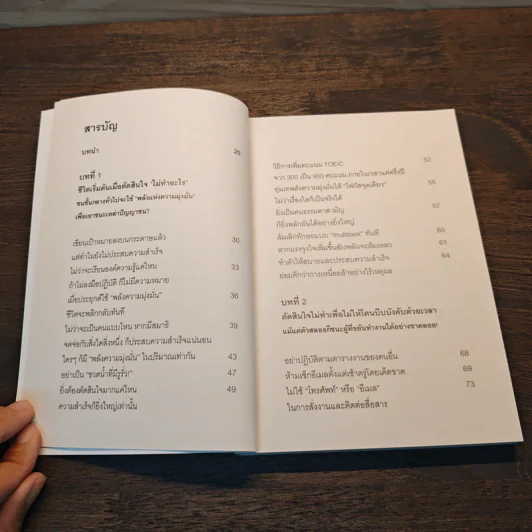 สารบัญ
บทนำ 20
บทที่ 1
ชีวิตเริ่มต้นเมื่อตัดสินใจ "ไม่ทำอะไร"
ชนชั้นกลางทั่วไปจะใช้ "พลังแห่งความมุ่งมั่น"
เพื่อเอาชนะเหล่าปัญญาชน?
เขียนเป้าหมายลงบนกระดาษแล้ว 30
แต่ทำไมยังไม่ประสบความสำเร็จ
ไม่ว่าจะเรียนองค์ความรู้แค่ไหน 33
ถ้าไม่ลงมือปฏิบัติ ก็ไม่มีความหมาย
เมื่อประยุกต์ใช้ "พลังความมุ่งมั่น" 36
ชีวิตจะพลิกกลับทันที
ไม่ว่าจะเป็นคนแบบไหน หากมีสมาธิ 39
จดจ่อกับสิ่งใดสิ่งหนึ่ง ก็ประสบความสำเร็จแน่นอน
ใครๆ ก็มี "พลังความมุ่งมั่น" ในปริมาณเท่ากัน 43
อย่าเป็น "ขวดน้ำที่มีรูรั่ว" 47
ยิ่งต้องตัดสินใจมากแค่ไหน 49
ความสำเร็จก็ยิ่งใหญ่เท่านั้น
วิธีการเพิ่มคะแนน TOEIC 52
จาก 300 เป็น 900 คะแนน ภายในเวลาแค่ครึ่งปี
ทุ่มเทพลังความมุ่งมั่นให้ "โฟกัสจุดเดียว" 55
ไม่ว่าเรื่องใดก็เป็นจริงได้
ยิ่งเป็นคนธรรมดาสามัญ 57
ก็ยิ่งพลิกผันได้อย่างยิ่งใหญ่
ล้มเลิกทักษะแบบ "multitask" ทันที 60
หากแรงจูงใจเพิ่มขึ้นฉับพลันจะล้มเหลว 61
ทำตัวให้สบายและประสบความสำเร็จ 64
ย่อมดีกว่าการเหนื่อยล้าอย่างไร้เหตุผล
บทที่ 2
ตัดสินใจไม่ทำเพื่อไม่ให้โดนบีบบังคับด้วยเวลา
แม้แต่ตัวสลอธก็ชนะผู้ที่ขยันทำงานได้อย่างขาดลอย!
อย่าปฏิบัติตามตารางงานของคนอื่น 68
ห้ามเช็กอีเมลตั้งแต่เช้าตรู่โดยเด็ดขาด 69
ไม่ใช้ "โทรศัพท์" หรือ "อีเมล" 73
ในการสั่งงานและติดต่อสื่อสาร